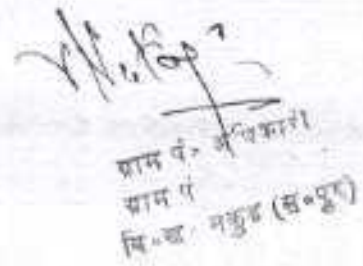 ग्राम पं० अधिकारी
ग्राम पं
वि०ख० नकुड (स०पुर)